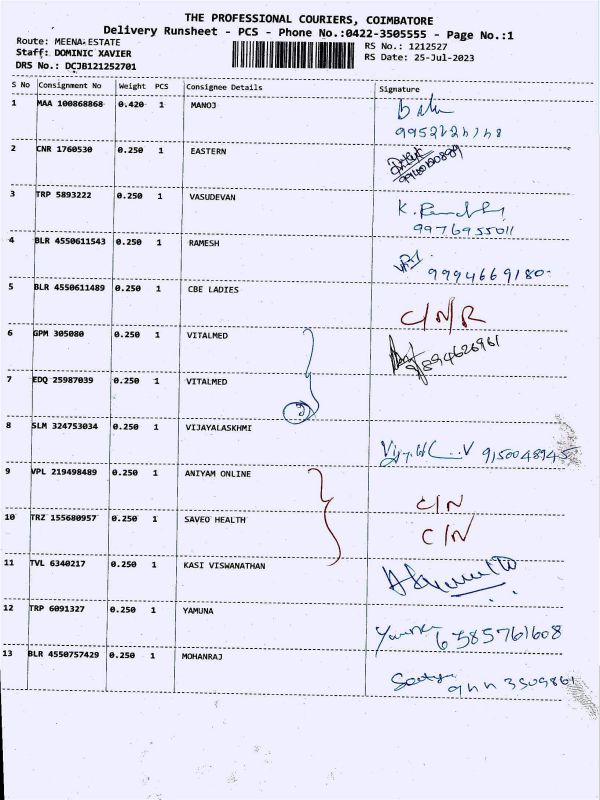 THE PROFESSIONAL COURIERS, COIMBATORE
Delivery Runsheet - PCS - Phone No.:0422-3505555 - Page No.:1
Route: MEENA ESTATE
Staff: DOMINIC XAVIER
DRS No.: DCJB121252701
RS No.: 1212527
RS Date: 25-Jul-2023
S No Consignment No Weight PCS Consignee Details Signature
1 MAA 100868868 0.420 1 MANOJ
2 CNR 1760530 0.250 1 EASTERN
3 TRP 5893222 0.250 1 VASUDEVAN K.
9976955011
4 BLR 4550611543 0.250 1 RAMESH 9994669180
5 BLR 4550611489 0.250 1 CBE LADIES C/N/R
6 GPM 305080 0.250 1 VITALMED
7 EDQ 25987039 0.250 1 VITALMED
2
8 SLM 324753034 0.250 1 VIJAYALASKHMI 9150048945
9 VPL 219498489 0.250 1 ANIYAM ONLINE C/N
10 TRZ 155680957 0.250 1 SAVEO HEALTH C/N
11 TVL 6340217 0.250 1 KASI VISWANATHAN
12 TRP 6091327 0.250 1 YAMUNA Yamuna 6385761608
13 BLR 4550757429 0.250 1 MOHANRAJ Sathya